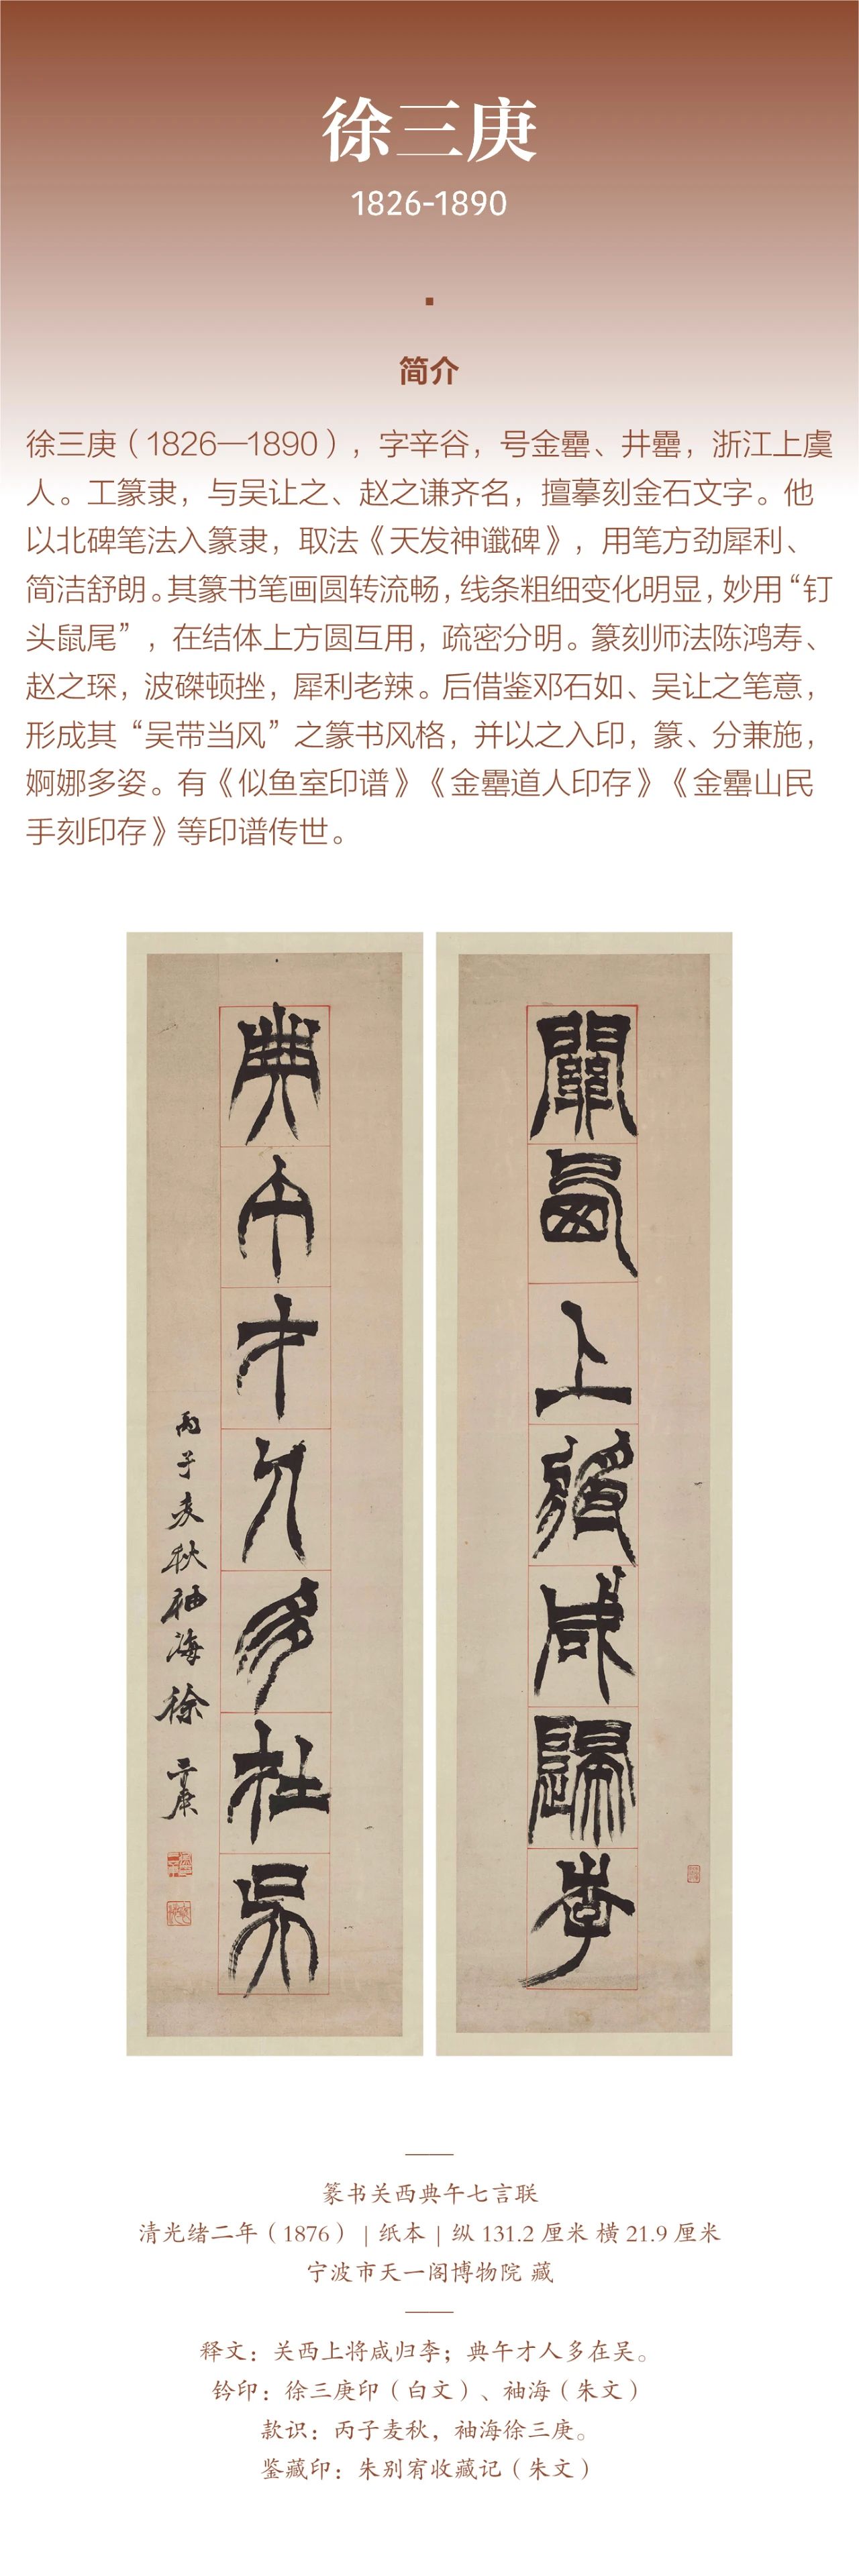 徐三庚
1826-1890
简介
徐三庚（1826—1890），字辛谷，号金罍、井罍，浙江上虞
人。工篆隶，与吴让之、赵之谦齐名，擅摹刻金石文字。他
以北碑笔法入篆隶，取法《天发神谶碑》，用笔方劲犀利、
简洁舒朗。其篆书笔画圆转流畅，线条粗细变化明显，妙用“钉
头鼠尾”，在结体上方圆互用，疏密分明。篆刻师法陈鸿寿、
赵之琛，波磔顿挫，犀利老辣。后借鉴邓石如、吴让之笔意，
形成其“吴带当风”之篆书风格，并以之入印，篆、分兼施，
婀娜多姿。有《似鱼室印谱》《金罍道人印存》《金罍山民
手刻印存》等印谱传世。
關西上將咸歸李
典午才人多在吳
丙子麦秋袖海徐三庚
篆书关西典午七言联
清光绪二年（1876） | 纸本 | 纵 131.2 厘米 横 21.9 厘米
宁波市天一阁博物院 藏
释文：关西上将咸归李；典午才人多在吴。
钤印：徐三庚印（白文）、袖海（朱文）
款识：丙子麦秋，袖海徐三庚。
鉴藏印：朱别宥收藏记（朱文）